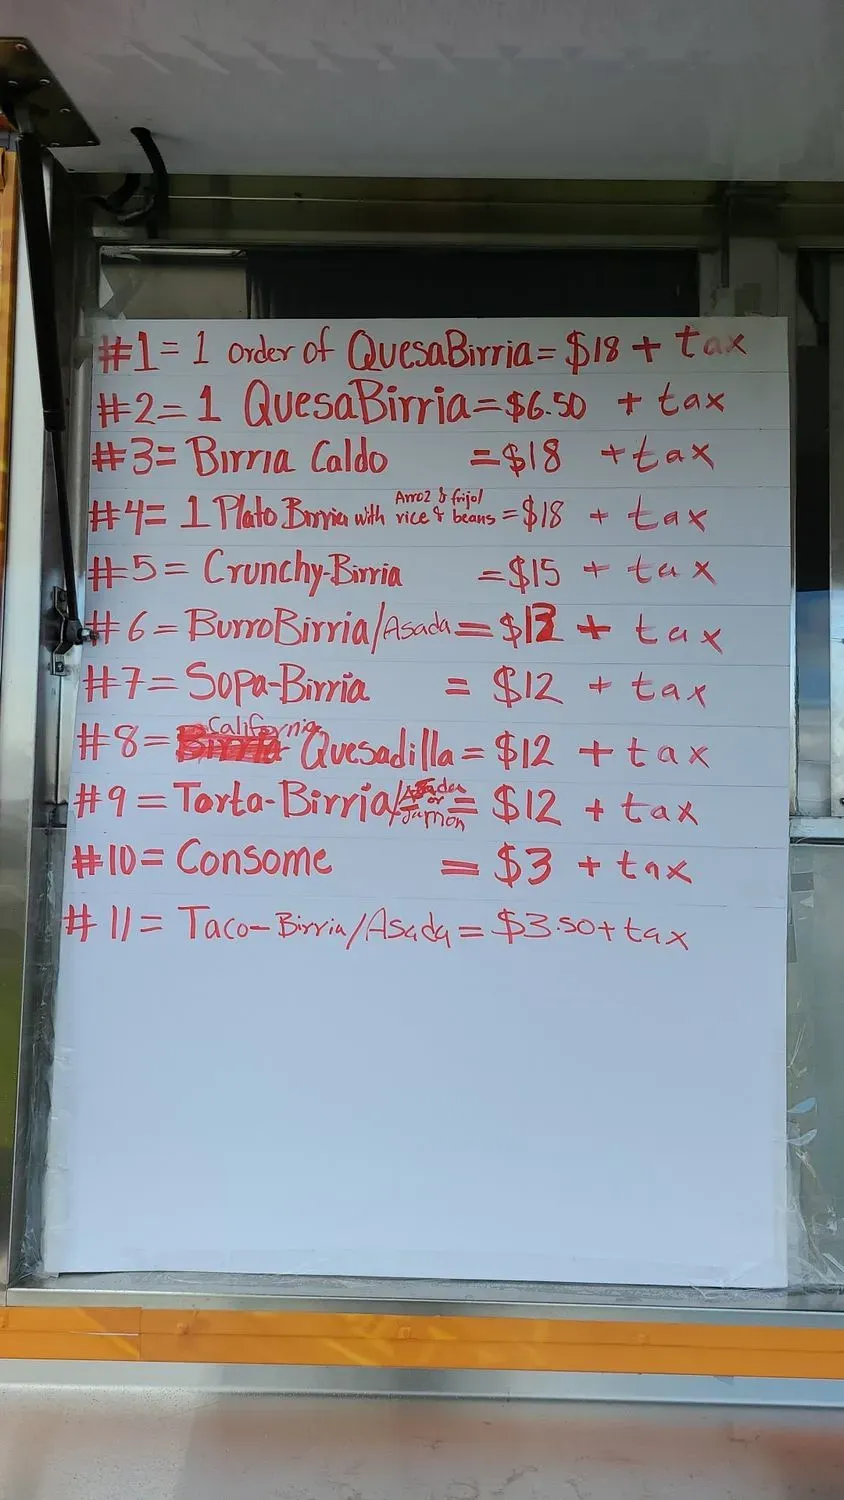 #1= 1 order of QuesaBirria= $18 + tax
#2= 1 QuesaBirria=$6.50 + tax
#3= Birria Caldo =$18 +tax
Arroz & frijol
#4= 1 Plato Birria with rice & beans =$18 + tax
#5= Crunchy-Birria =$15 + tax
#6= BurroBirria/Asada= $13 + tax
#7= Sopa-Birria = $12 + tax
California
#8= Quesadilla= $12 + tax
#9= Torta-Birria/Asada or Jamon = $12 + tax
#10= Consome = $3 + tax
#11= Taco-Birria/Asada= $3.50+tax